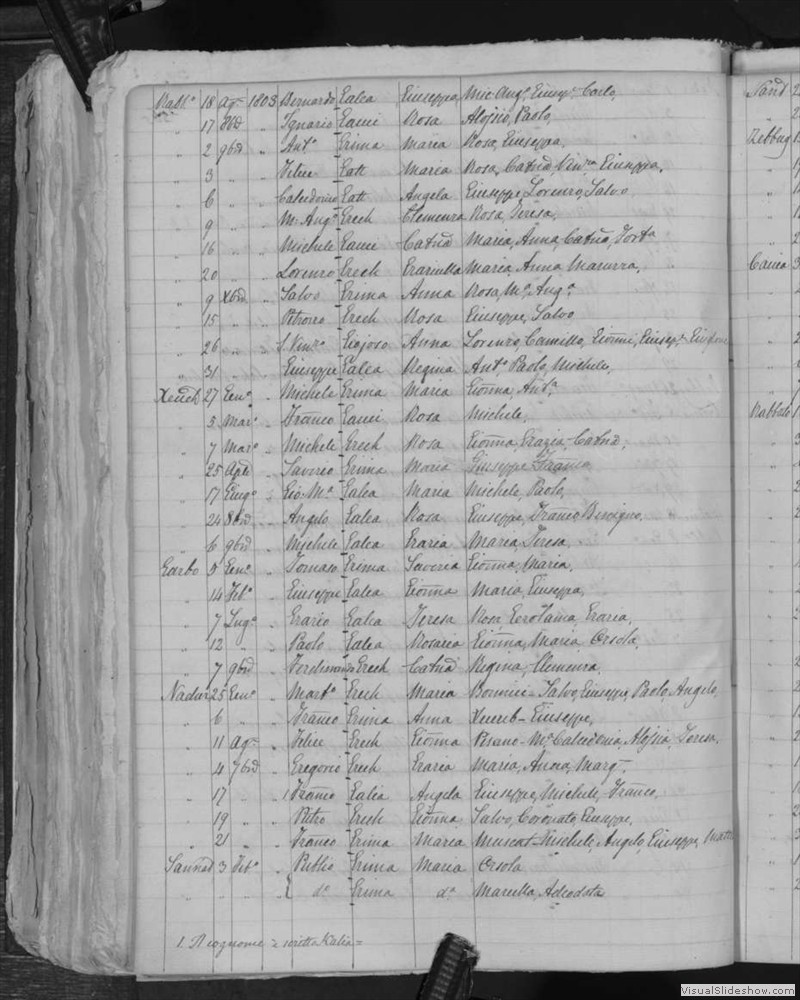 Rabb.o 18 Ag. 1803 Bernardo Galea Giuseppa Mic Ang.o Giusep. Carlo,
" 17 8bre " Ignazio Gauci Rosa Aloisio, Paolo,
" 2 9bre " Ant.o Grima Maria Rosa, Giuseppa,
" 3 " " Felice Gatt Maria Rosa, Catna, Vin.za Giuseppa,
" 6 " " Calcedonio Gatt Angela Giuseppe, Lorenzo, Salvo
" 9 " " M. Ang.o Grech Clemenza Rosa, Teresa,
" 16 " " Michele Gauci Catna Maria, Anna, Catna,
" 20 " " Lorenzo Grech Graziulla Maria, Anna
" 9 Xbre " Salvo Grima Anna Rosa, M.a Ang.a
" 15 " Petronio Grech Rosa Giuseppe, Salvo
" 26 " " Vin.zo Anna Lorenzo, Camillo, Gionni, Giusep.
" 31 " Giuseppe Galea Regina Ant.o Paolo, Michele,
Xeuch 27 Gen.o " Michele Grima Maria Gionna, Ant.a
" 5 Mar.o " Franco Gauci Rosa Michele,
" 7 Mar.o " Michele Grech Rosa Gionna, Grazia, Catna,
" 25 Aple " Saverio Grima Maria Giuseppe, Franco
" 17 Giug.o " Gio: M.a Galea Maria Michele, Paolo,
" 24 8bre " Angelo Galea Rosa Giuseppe, Franco Benigno,
" 6 9bre " Michele Galea Grazia Maria, Teresa,
Garbo 5 Gen.o " Tomaso Grima Saveria Gionna, Maria,
" 14 Feb.o " Giuseppe Galea Gionna Maria, Giuseppa,
" 7 Lug.o " Grazio Galia Teresa Rosa, Gerolama, Grazia,
" 12 " " Paolo Galea Rosaria Gionna, Maria Orsola,
" 7 9bre " Ferdinando Grech Catna Regina, Clemenza,
Nadur 25 Gen.o " Mart.o Grech Maria Bonnici - Salvo, Giuseppe, Paolo, Angelo,
" 6 " " Franco Grima Anna Xuereb - Giuseppe,
" 11 Ag. " Felice Grech Gionna Pisano - M.a Calcedonia, Aloisia, Teresa,
" 4 7bre " Gregorio Grech Grazia Maria, Anna, Marg.
" 17 " " 1 Franco Galia Angela Giuseppe, Michele, Franco,
" 19 " " Pietro Grech Gionna Salvo, Coronato, Giuseppe,
" 21 " Franco Grima Marea Muscat - Michele, Angelo, Giuseppe, Matt
Sannat 3 Feb.o " Publio Grima Maria Orsola
" " " " do Grima da Marcella, Adeodata
1. Il cognome è scritto Kalia =
Sand 2
Zebbug
Caccia 3
Rabbato 1
VisualSlideshow.com